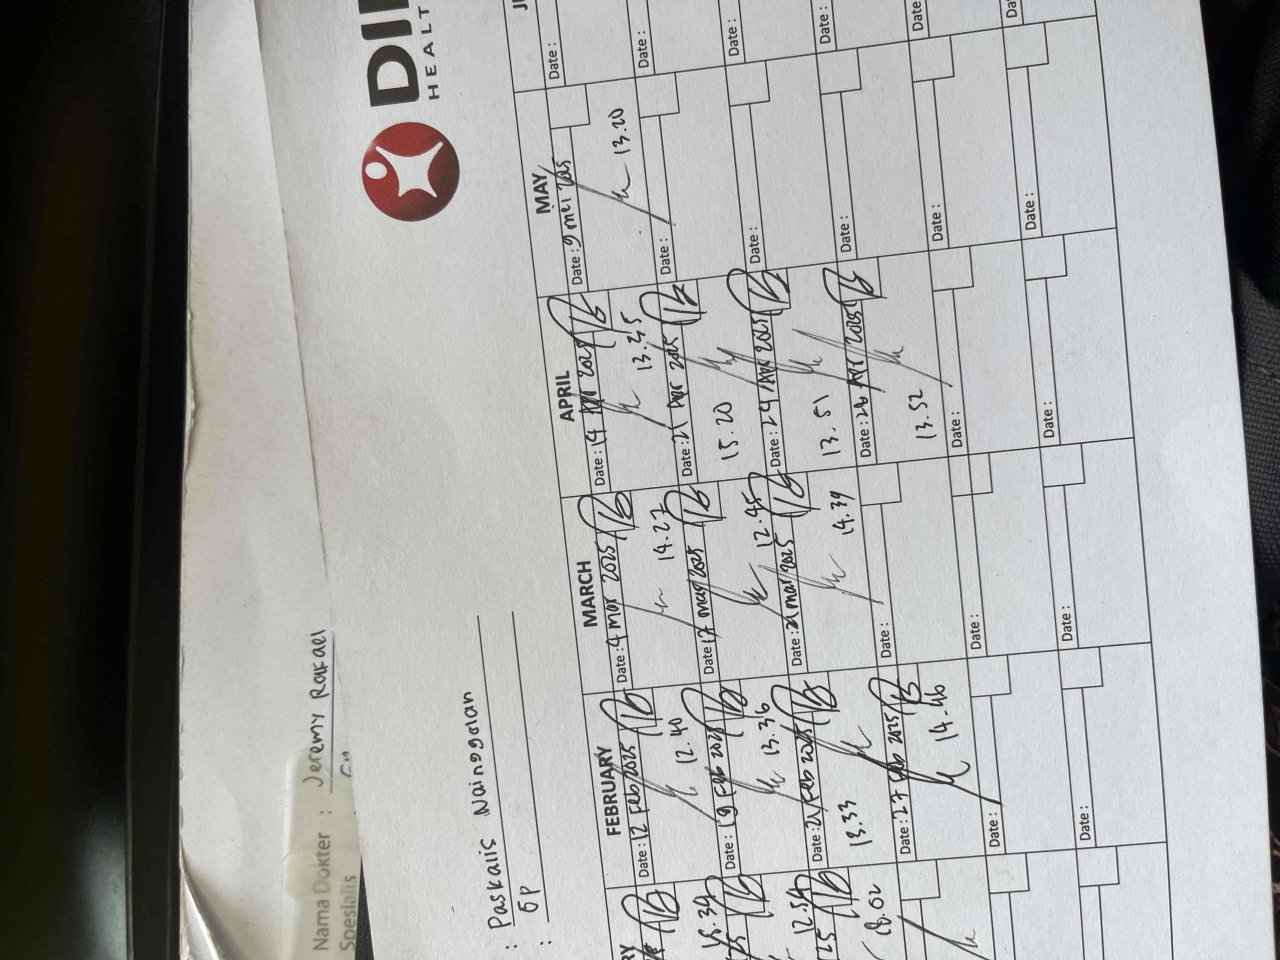 Nama Dokter : Jeremy Rafael
Spesialis
HEALT
: Paskalis Nainggolan
: GP
FEBRUARY MARCH APRIL MAY
Date: 12 Feb 2025 Date: 4 Mar 2025 Date: 14 Apr 2025 Date: 9 mei 2025 Date:
15.34 12.40 14.27 13.45 13.20
Date: 19 Feb 2025 Date: 17 mar 2025 Date: 21 Apr 2025 Date: Date:
12.54 13.36 12.45 15.20
Date: 21 Feb 2025 Date: 21 mar 2025 Date: 24 Apr 2025 Date: Date:
18.02 13.33 14.39 13.51
Date: 27 Feb 2025 Date: Date: 28 Apr 2025 Date: Date:
14.46 13.52
Date: Date: Date: Date: Date:
Date: Date: Date: Date: